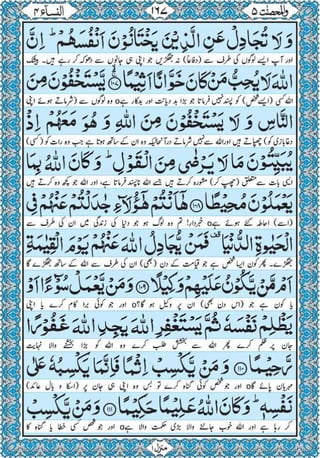 والمحصنٰت ۵ ۱۶۷ النسآء ۴
وَ لَا تُجَادِلْ عَنِ الَّذِیْنَ یَخْتَانُوْنَ اَنْفُسَهُمْ ؕ اِنَّ
اور آپ ایسے لوگوں کی طرف سے (دفاعاً) نہ جھگڑیں جو اپنی ہی جانوں سے دھوکہ کر رہے ہیں۔ بیشک
اللّٰهَ لَا یُحِبُّ مَنْ كَانَ خَوَّانًا اَثِیْمًا ۚۙ ﴿۱۰۷﴾ یَّسْتَخْفُوْنَ مِنَ
اللہ کسی (ایسے شخص) کو پسند نہیں فرماتا جو بڑا بد دیانت اور بدکار ہے o وہ لوگوں سے (شرماتے ہوئے اپنی
النَّاسِ وَ لَا یَسْتَخْفُوْنَ مِنَ اللّٰهِ وَ هُوَ مَعَهُمْ اِذْ
دغابازی کو) چھپاتے ہیں اور اللہ سے نہیں شرماتے درآنحالیکہ وہ ان کے ساتھ ہوتا ہے جب وہ رات کو (کسی)
یُبَیِّتُوْنَ مَا لَا یَرْضٰى مِنَ الْقَوْلِ ؕ وَ كَانَ اللّٰهُ بِمَا
ایسی بات سے متعلق (چھپ کر) مشورہ کرتے ہیں جسے اللہ ناپسند فرماتا ہے، اور اللہ جو کچھ وہ کرتے ہیں
یَعْمَلُوْنَ مُحِیْطًا ﴿۱۰۸﴾ هٰۤاَنْتُمْ هٰۤؤُلَآءِ جٰدَلْتُمْ عَنْهُمْ فِی
(اسے) احاطہ کئے ہوئے ہے o خبردار! تم وہ لوگ ہو جو دنیا کی زندگی میں ان کی طرف سے
الْحَیٰوةِ الدُّنْیَا ۫ فَمَنْ یُّجَادِلُ اللّٰهَ عَنْهُمْ یَوْمَ الْقِیٰمَةِ
جھگڑے۔ پھر کون ایسا شخص ہے جو قیامت کے دن (بھی) ان کی طرف سے اللہ کے ساتھ جھگڑے گا
اَمْ مَّنْ یَّكُوْنُ عَلَیْهِمْ وَكِیْلًا ﴿۱۰۹﴾ وَ مَنْ یَّعْمَلْ سُوْٓءًا اَوْ
یا کون ہے جو (اس دن بھی) ان پر وکیل ہو گا؟ o اور جو کوئی برا کام کرے یا اپنی
یَظْلِمْ نَفْسَهٗ ثُمَّ یَسْتَغْفِرِ اللّٰهَ یَجِدِ اللّٰهَ غَفُوْرًا
جان پر ظلم کرے پھر اللہ سے بخشش طلب کرے وہ اللہ کو بڑا بخشنے والا نہایت
رَّحِیْمًا ﴿۱۱۰﴾ وَ مَنْ یَّكْسِبْ اِثْمًا فَاِنَّمَا یَكْسِبُهٗ عَلٰى
مہربان پائے گا o اور جو شخص کوئی گناہ کرے تو بس وہ اپنی ہی جان پر (اسکا و بال عائد)
نَفْسِهٖ ؕ وَ كَانَ اللّٰهُ عَلِیْمًا حَكِیْمًا ﴿۱۱۱﴾ وَ مَنْ یَّكْسِبْ
کر رہا ہے اور اللہ خوب جاننے والا بڑی حکمت والا ہے o اور جو شخص کسی خطا یا گناہ کا
منزل ۱